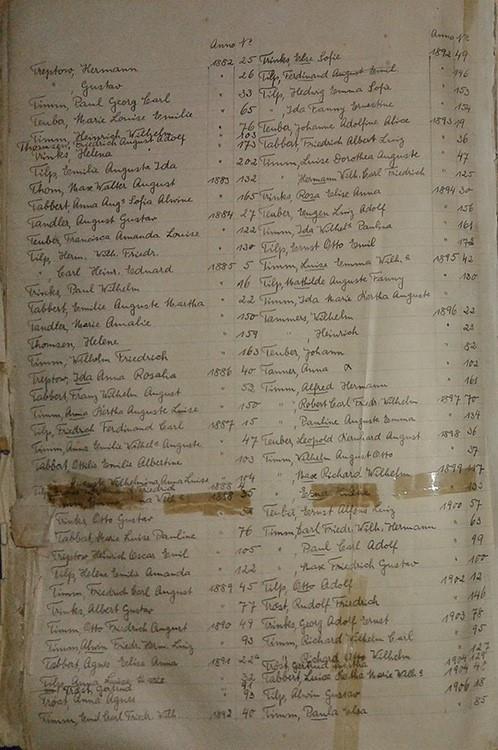 Anno No
Treptow, Hermann 1882 25
" Gustav " 26
Timm, Paul Georg Carl " 33
Teuber, Marie Louise Emilie " 65
Timm, Heinrich Wilhelm " 76
Thomsen, Friedrich August Adolf 103
Trinks, Helena " 173
Tilp, Emilie Auguste Ida " 202
Thom, Max Walter August 1883 132
Tabbert Anna Aug. Sofia Alwine " 165
Tandler, August Gustav 1884 27
Teuber, Francisca Amanda Louise " 122
Tilp, Herm. Wilh. Friedr. " 130
" Carl Heinr. Eduard 1885 5
Trinks, Paul Wilhelm " 16
Tabbert, Emilie Auguste Martha " 22
Tandler, Marie Amalie " 150
Thomsen, Helene " 159
Timm, Wilhelm Friedrich " 163
Treptow, Ida Anna Rosalia 1886 40
Tabbert, Franz Wilhelm August " 53
Timm, Anna Bertha Auguste Luise " 150
Tilp, Friedrich Ferdinand Carl 1887 15
Timm, Anna Emilie Auguste " 47
Tabbat, Ottilie Emilie Albertine " 103
Wilhelmina Anna Luise 104
1888 35
Trinks, Otto Gustav " 54
Tabbat, Marie Luise Pauline " 76
Treptow Heinrich Oscar Emil " 105
Tilp, Helene Emilie Amanda " 122
Timm, Friedrich Carl August 1889 45
Trinks, Albert Gustav " 77
Timm, Otto Friedrich August 1890 49
Timm, Alwin Friedr. Herm. Ling " 93
Tabbat, Agnes Elise Anna 1891 22a
Tilp, Anna Luise
Trost, Gertrud 91
Trost, Anna Agnes " 93
Timm, Emil Carl Friedr. Wilh. 1892 40
Anno No
Trinks, Else Sofie 1892 49
Tilp, Ferdinand August Emil " 146
Tilp, Hedwig Emma Sofie " 153
" Ida Fanny Ernestine " 154
Teuber, Johanne Adolfine Alice 1893 19
Tabbat, Friedrich Albert Ling " 36
Timm, Luise Dorothea Auguste " 47
" Hermann Wilh. Carl Friedrich " 125
Trinks, Rosa Elise Anna 1894 30
Teuber, Eugen Ling Adolf " 156
Timm, Ida Wilhel. Paulina " 161
Tilp, Ernst Otto Emil "
Timm, Luise Emma Wilh. 1895 42
Tilp, Mathilde Auguste Fanny " 130
Timm, Ida Marie Bertha Auguste "
Tammers, Wilhelm 1896 22
" Heinrich " 23
Teuber, Johann " 82
Tanner, Anna " 102
Timm, Alfred Hermann " 161
" Robert Carl Friedr. Wilhelm 1897 70
" Pauline Auguste Emma " 134
Teuber, Leopold Reinhard August 1898 36
Timm, Wilhelm August Otto " 37
" Max Richard Wilhelm 1899 117
" Erna "
Teuber, Ernst Alfons Ling 1900 57
Timm, Carl Friedr. Wilh. Hermann " 63
" Paul Carl Adolf " 99
" Max Friedrich Gustav " 100
Tilp, Otto Adolf 1902 12
Trost, Rudolf Friedrich " 146
Trinks, Georg Adolf Ernst 1903 78
Timm, Richard Wilhelm Carl " 95
" Richard Otto Wilhelm " 127
Trost, Gertrud Martha 1904
Tabbert, Luise Marie Wilh. 1904
Tilp, Alwin Gustav 1906 18
Timm, Paula Elsa " 85